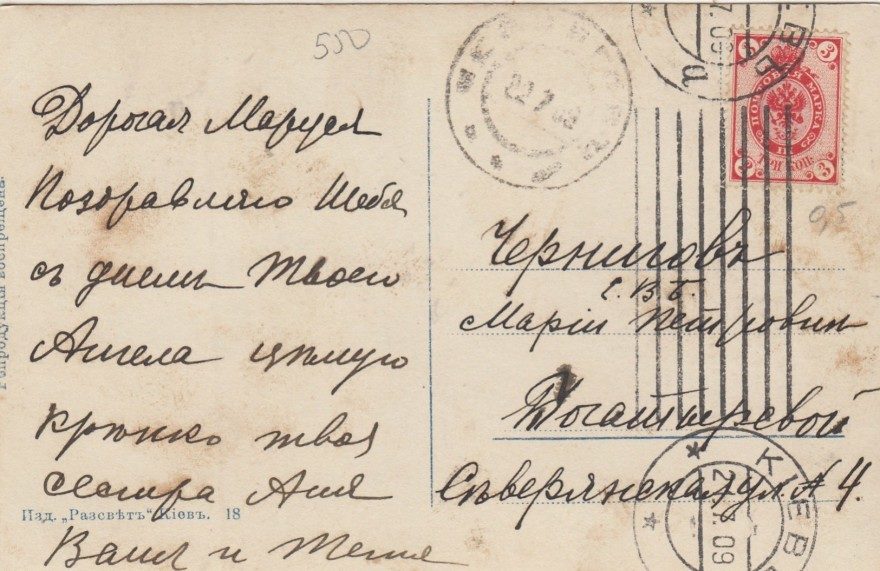 550
Дорогая Маруся
Поздравляю Тебя
съ днемъ Твоего
Ангела цѣлую
крѣпко твоя
сестра Аня
Ваня и Женя
Репродукція воспрещена.
Изд. „Разсвѣтъ“ Кіевъ. 18
22 7 09
КІЕВЪ
7.09
a
3 3
ПОЧТОВАЯ МАРКА
ТРИ КОП.
3 3
0,5
Черниговъ
Е. В. Б.
Маріи Петровнѣ
Богатыревой
Сѣверянская ул. № 4.
КІЕВЪ
2 7.09